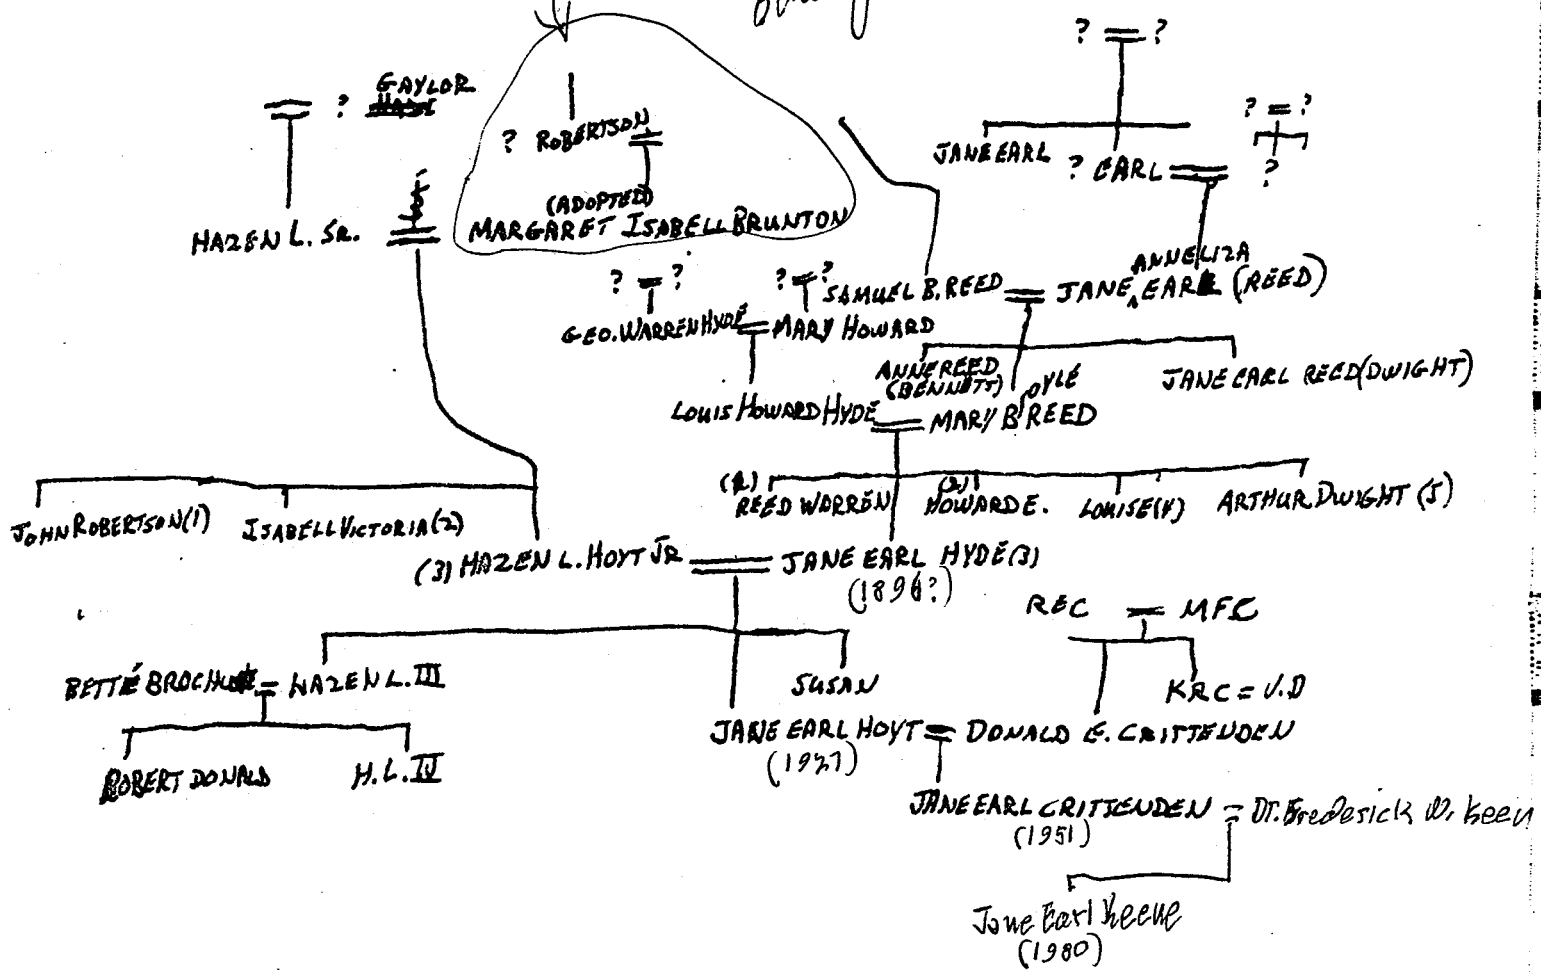 ? = ?
GAYLOR
?
? = ?
? ROBERTSON
JANE EARL
? EARL
?
(ADOPTED)
HAZEN L. SR.
MARGARET ISABELL BRUNTON
ANNELIZA
? = ?
? = ?
SAMUEL B. REED = JANE EARL (REED)
GEO. WARREN HYDE = MARY HOWARD
ANNE REED
(BENNETT)
JANE EARL REED (DWIGHT)
OYLE
LOUIS HOWARD HYDE = MARY B REED
REED WARREN
HOWARD E.
LOUISE (4)
ARTHUR DWIGHT (5)
JOHN ROBERTSON (1)
ISABELL VICTORIA (2)
(3) HAZEN L. HOYT JR = JANE EARL HYDE (3)
(1896?)
REC = MFC
BETTE = HAZEN L. III
SUSAN
KRC = V.D
JANE EARL HOYT = DONALD E. CRITTENDEN
(1927)
ROBERT DONALD
H.L. IV
JANE EARL CRITTENDEN = Dr. Frederick W. Keen
(1951)
Jane Earl Keene
(1980)